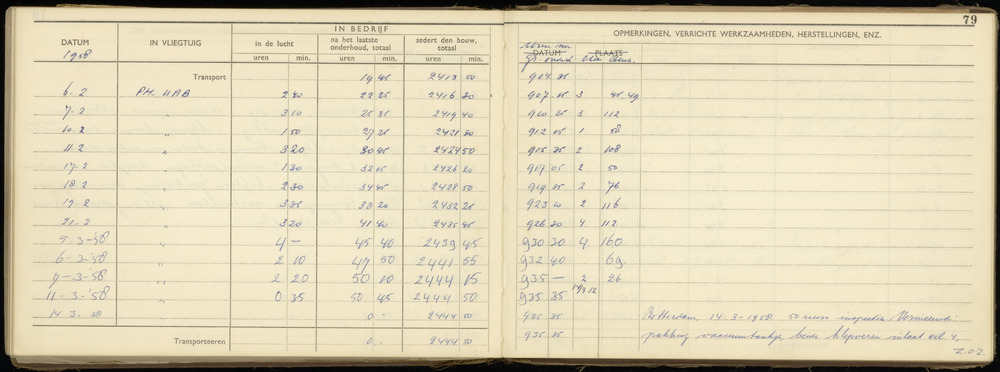 79
IN BEDRIJF
OPMERKINGEN, VERRICHTE WERKZAAMHEDEN, HERSTELLINGEN, ENZ.
DATUM IN VLIEGTUIG in de lucht na het laatste onderhoud, totaal sedert den bouw, totaal DATUM PLAATS
1958 uren min. uren min. uren min. Olie
Transport 19 45 2413 50 904 35
6.2 PH. UAB 2 40 22 25 2416 30 907 15 3
7.2 " 3 10 25 35 2419 40 910 25 3 112
10.2 " 1 50 27 25 2421 30 912 15 1 58
11.2 " 3 20 30 45 2424 50 915 35 2 108
17.2 " 1 30 32 15 2426 20 917 05 2 50
18.2 " 2 30 34 45 2428 50 919 35 2 76
19.2 " 3 35 38 20 2432 25 923 10 2 116
21.2 " 3 20 41 40 2435 45 926 30 4 112
5.3-'58 " 4 - 45 40 2439 45 930 30 4 160
6-3-'58 " 2 10 47 50 2441 55 932 40 69
11-3-'58 " 2 20 50 10 2444 15 935 - 2 26
11-3-'58 " 0 35 50 45 2444 50 935 35
14.3.58 0 - 2444 50 935 35 Rotterdam, 14-3-1958. 50 uurs inspectie Vernieuwd:
Transporteeren 0 - 2444 50 935 35 pakking vacuumtankje, beide klepveren inlaat cil 4,
Z.O.Z.